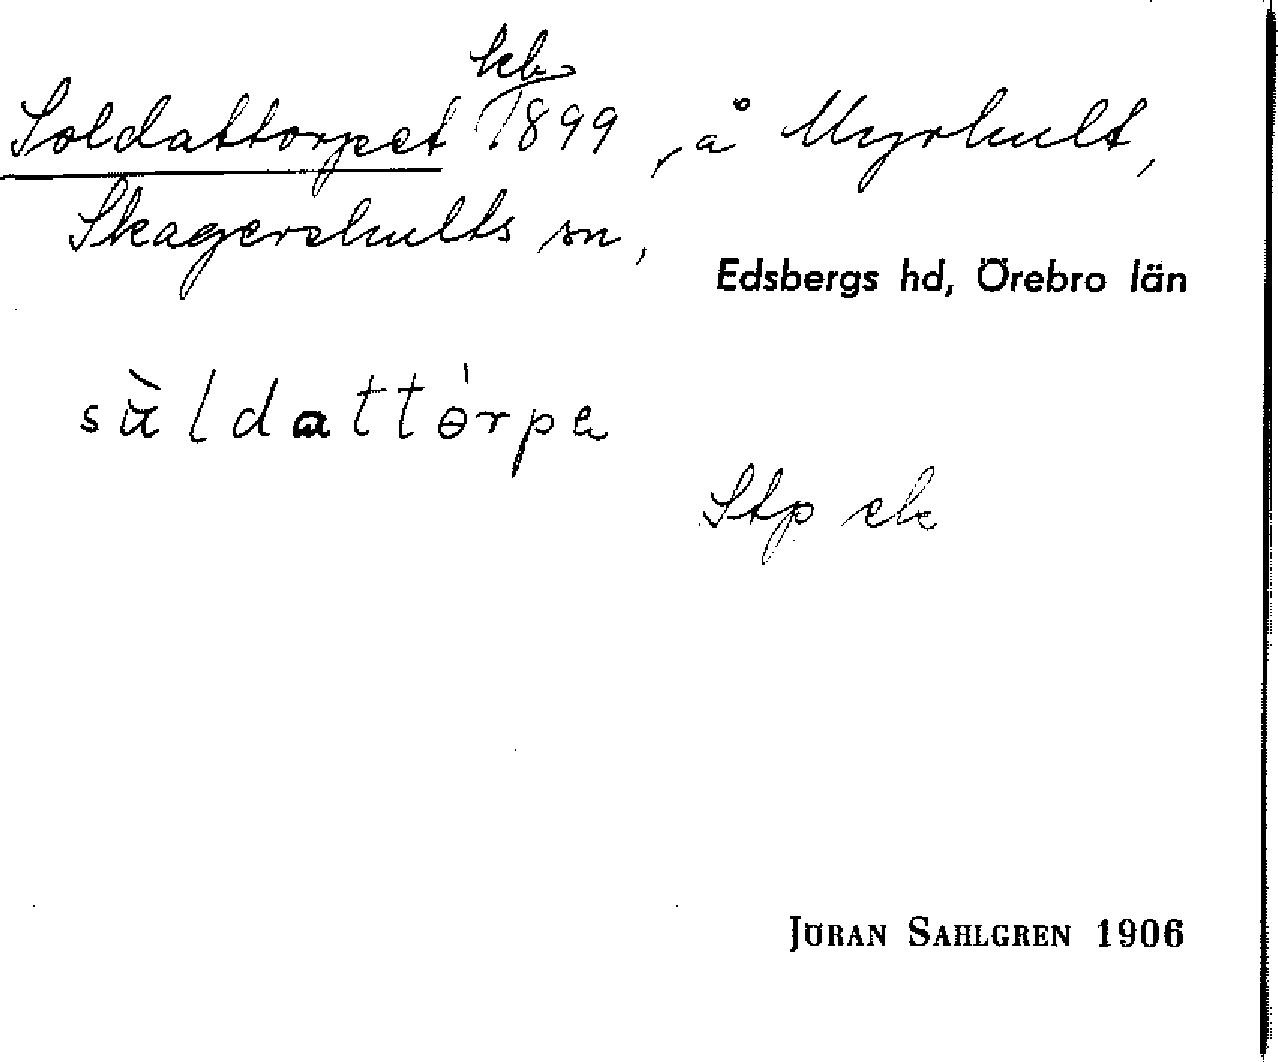 kb
Soldattorpet 1899, å Myrhult,
Skagershults sn,
Edsbergs hd, Örebro län
sὰldattórpa
Stp ek
JÖRAN SAHLGREN 1906